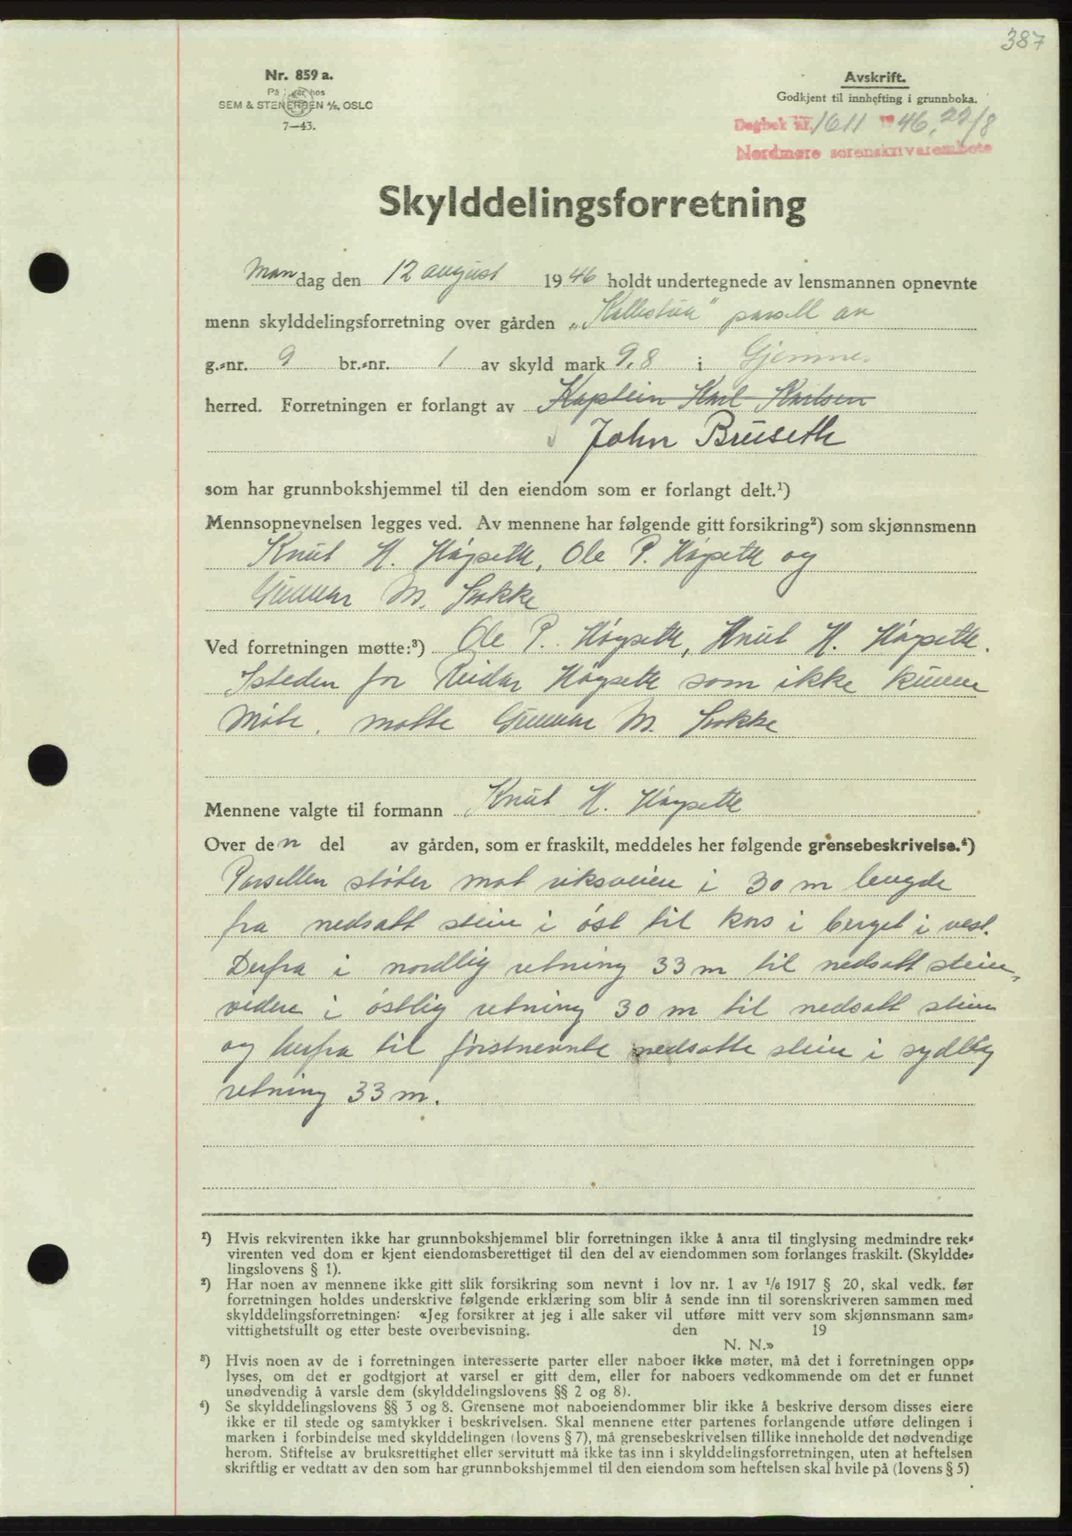 387
Nr. 859 a.
SEM & STENERSEN A/S, OSLO
7—43.
Avskrift.
Godkjent til innhefting i grunnboka.
Dagbok nr. 1611 1946, 22/8
Nordmøre sorenskriverembete
Skylddelingsforretning
Mandag den 12 august 1946 holdt undertegnede av lensmannen opnevnte
menn skylddelingsforretning over gården „ " parsell av
g.-nr. 9 br.-nr. 1 av skyld mark 9,8 i Gjemnes
herred. Forretningen er forlangt av Kaptein Karl Karlsen
John Bruseth
som har grunnbokshjemmel til den eiendom som er forlangt delt.¹)
Mennsopnevnelsen legges ved. Av mennene har følgende gitt forsikring²) som skjønnsmenn
Knut H. Høgseth, Ole P. Høgseth og
Gunnar M. Stokke
Ved forretningen møtte:³) Ole P. Høgseth, Knut H. Høgseth.
Isteden for Reidar Høgseth som ikke kunne
møte, møtte Gunnar M. Stokke
Mennene valgte til formann Knut H. Høgseth
Over den del av gården, som er fraskilt, meddeles her følgende grensebeskrivelse.⁴)
Parsellen støter mot riksveien i 30 m lengde
fra nedsatt stein i øst til kors i berget i vest.
Derfra i nordlig retning 33 m til nedsatt stein,
videre i østlig retning 30 m til nedsatt stein
og herfra til førstnevnte nedsatte stein i sydlig
retning 33 m.
¹) Hvis rekvirenten ikke har grunnbokshjemmel blir forretningen ikke å anta til tinglysing medmindre rek-
virenten ved dom er kjent eiendomsberettiget til den del av eiendommen som forlanges fraskilt. (Skyldde-
lingslovens § 1).
²) Har noen av mennene ikke gitt slik forsikring som nevnt i lov nr. 1 av 1/6 1917 § 20, skal vedk. før
forretningen holdes underskrive følgende erklæring som blir å sende inn til sorenskriveren sammen med
skylddelingsforretningen: «Jeg forsikrer at jeg i alle saker vil utføre mitt verv som skjønnsmann sam-
vittighetsfullt og etter beste overbevisning. den 19
N. N.»
³) Hvis noen av de i forretningen interesserte parter eller naboer ikke møter, må det i forretningen opp-
lyses, om det er godtgjort at varsel er gitt dem, eller for naboers vedkommende om det er funnet
unødvendig å varsle dem (skylddelingslovens §§ 2 og 8).
⁴) Se skylddelingslovens §§ 3 og 8. Grensene mot naboeiendommer blir ikke å beskrive dersom disses eiere
ikke er til stede og samtykker i beskrivelsen. Skal mennene etter partenes forlangende utføre delingen i
marken i forbindelse med skylddelingen (lovens § 7), må grensebeskrivelsen tillike inneholde det nødvendige
herom. Stiftelse av bruksrettighet eller servitutt må ikke tas inn i skylddelingsforretningen, uten at heftelsen
skriftlig er vedtatt av den som har grunnbokshjemmel til den eiendom som heftelsen skal hvile på (lovens § 5)